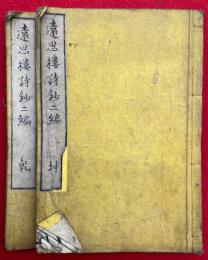 遠思樓詩鈔二編 乾
遠思樓詩鈔二編 坤